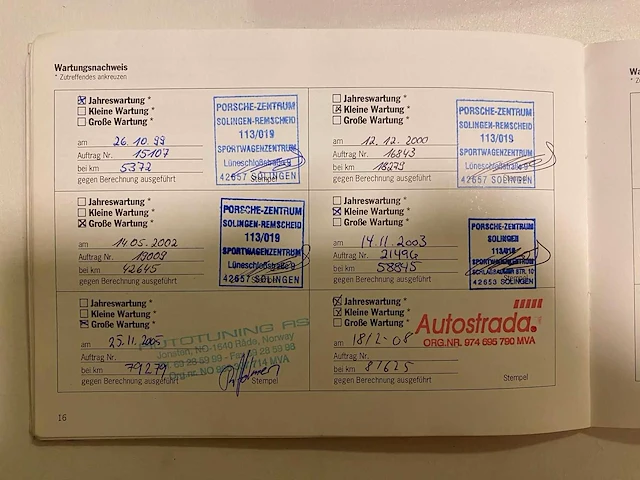 Wartungsnachweis
* Zutreffendes ankreuzen
Jahreswartung *
Kleine Wartung *
Große Wartung *
am 26.10.99
Auftrag Nr. 15107
bei km 5372
gegen Berechnung ausgeführt
Stempel
PORSCHE-ZENTRUM
SOLINGEN-REMSCHEID
113/019
SPORTWAGENZENTRUM
Lüneschloßstraße 9
42657 SOLINGEN
Jahreswartung *
Kleine Wartung *
Große Wartung *
am 12.12.2000
Auftrag Nr. 16843
bei km 18279
gegen Berechnung ausgeführt
Stempel
PORSCHE-ZENTRUM
SOLINGEN-REMSCHEID
113/019
SPORTWAGENZENTRUM
Lüneschloßstraße 9
42657 SOLINGEN
Jahreswartung *
Kleine Wartung *
Große Wartung *
am 14.05.2002
Auftrag Nr. 19009
bei km 42645
gegen Berechnung ausgeführt
PORSCHE-ZENTRUM
SOLINGEN-REMSCHEID
113/019
SPORTWAGENZENTRUM
Lüneschloßstraße 9
42657 SOLINGEN
Jahreswartung *
Kleine Wartung *
Große Wartung *
am 14.11.2003
Auftrag Nr. 21496
bei km 58845
gegen Berechnung ausgeführt
PORSCHE-ZENTRUM
SOLINGEN
113/019
SPORTWAGENZENTRUM
STR. 10
42653 SOLINGEN
Jahreswartung *
Kleine Wartung *
Große Wartung *
am 25.11.2005
Auftrag Nr.
bei km 79279
gegen Berechnung ausgeführt
Stempel
AUTOTUNING AS
NO-1640 Råde, Norway
714 MVA
Jahreswartung *
Kleine Wartung *
Große Wartung *
am 18/2-08
Auftrag Nr.
bei km 81625
gegen Berechnung ausgeführt
Stempel
Autostrada.
ORG.NR. 974 695 790 MVA
16